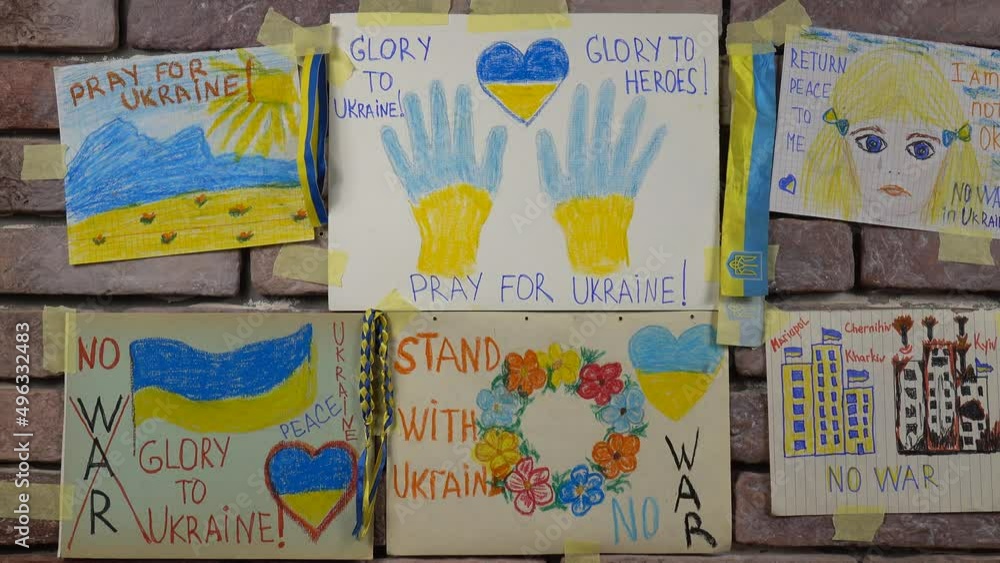 PRAY FOR
UKRAINE!
GLORY
TO
UKRAINE!
GLORY TO
HEROES!
PRAY FOR UKRAINE!
RETURN
PEACE
TO
ME
I am
not
OK
NO WA
in UKRAI
NO
WAR
GLORY
TO
UKRAINE!
PEACE
UKRAINE
STAND
WITH
UKRAIN
NO
WAR
Mariapol
Chernihiv
Kharkiv
Kyiv
NO WAR
Adobe Stock | #496332483